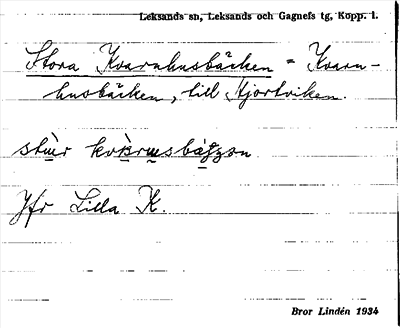 Leksands sn, Leksands och Gagnefs tg, Kopp. l.
Stora Kvarnhusbäcken = Kvarn-
husbäcken, till Hjortviken.
Jfr Lilla K.
Bror Lindén 1934